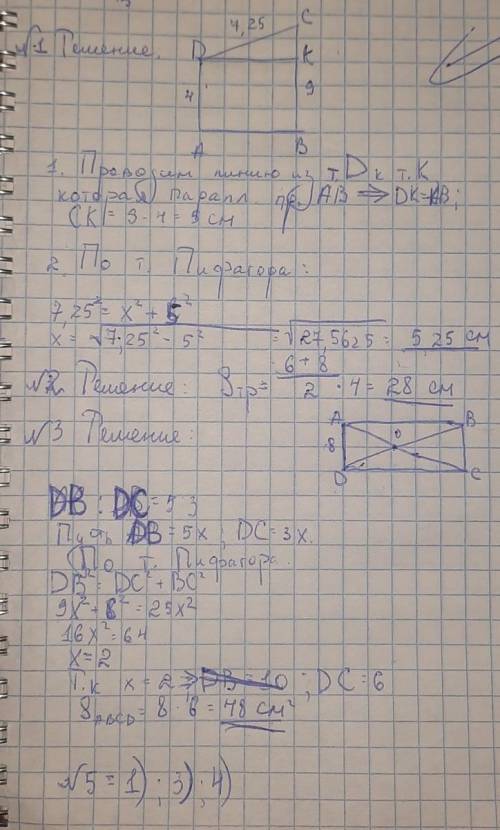 №1 Решение.
4,25
C
D
K
4
9
A
B
1. Проводим линию из т. D к т. K
которая парал. пр. AB ⇒ DK=AB;
CK = 9-4=5 см
2. По т. Пифагора:
7,25² = x² + 5²
x = √7,25² - 5² = √27,5625 = 5,25 см
№2 Решение: Sтр = 6+8/2 · 4 = 28 см
№3 Решение:
A
B
8
O
D
C
DB : DC = 5 3
Пусть DB = 5x, DC = 3x.
По т. Пифагора.
DB² = DC² + BC²
9x² + 8² = 25x²
16x² = 64
x = 2
Т.к x = 2 ⇒ DB = 10; DC = 6
SABCD = 8 · 6 = 48 см²
№5 = 1) ; 3) ; 4)